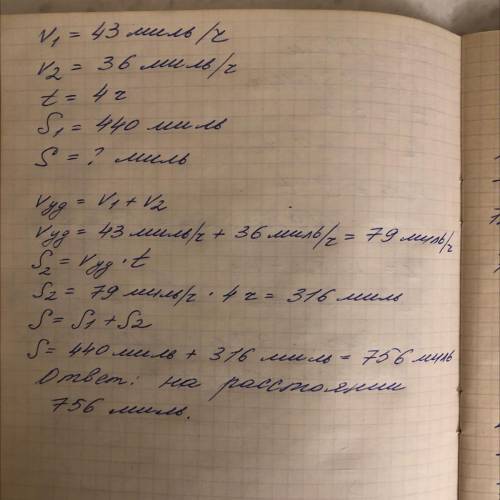 v₁ = 43 миль/ч
v₂ = 36 миль/ч
t = 4 ч
S₁ = 440 миль
S = ? миль
vуд = v₁ + v₂
vуд = 43 миль/ч + 36 миль/ч = 79 миль/ч
S₂ = vуд · t
S₂ = 79 миль/ч · 4 ч = 316 миль
S = S₁ + S₂
S = 440 миль + 316 миль = 756 миль
Ответ: на расстоянии
756 миль.